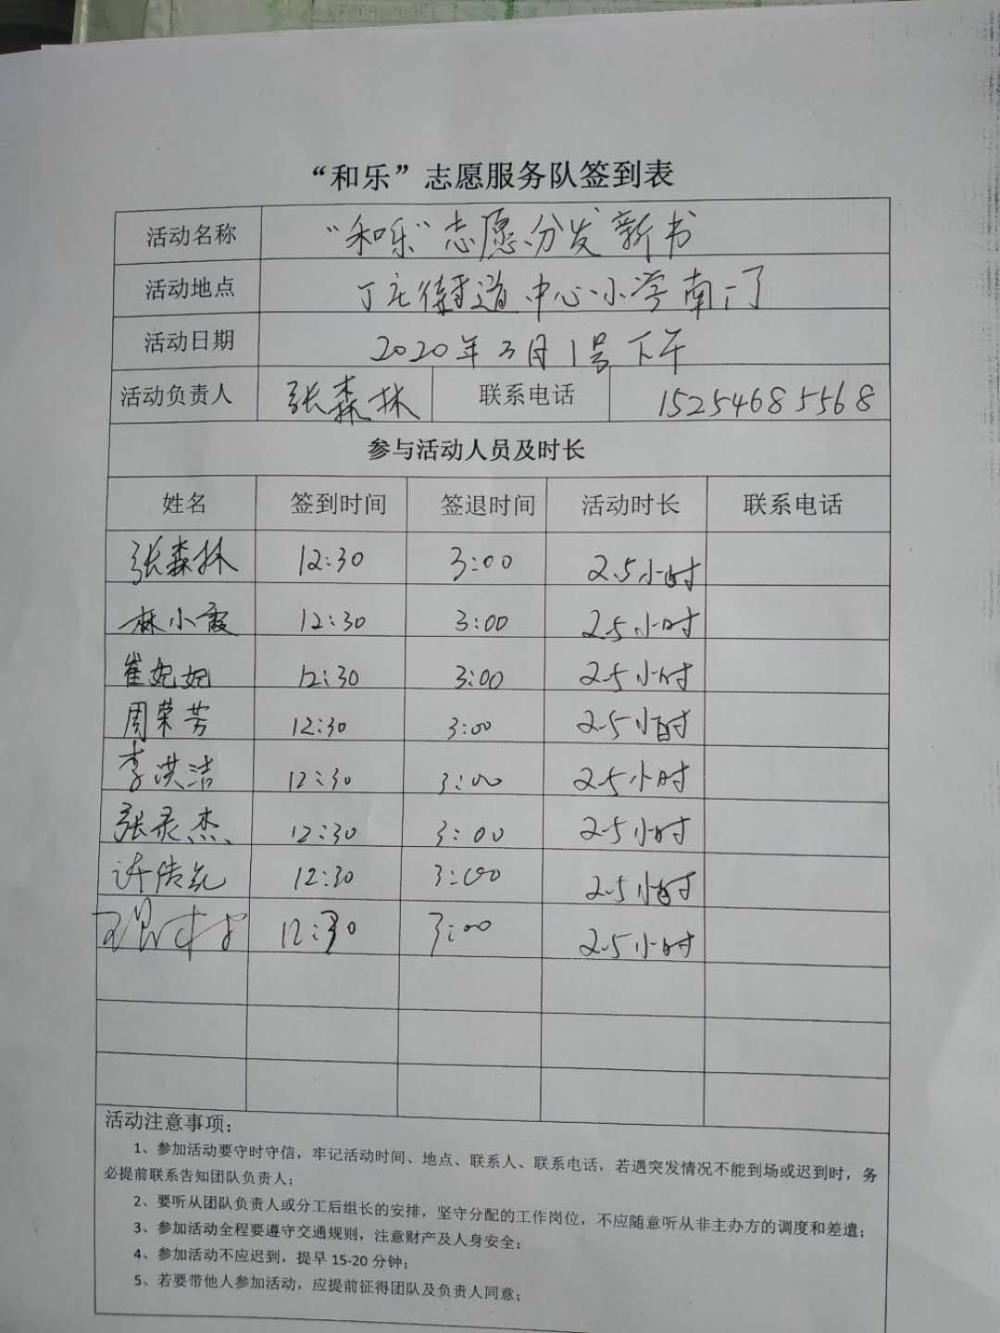 “和乐”志愿服务队签到表
活动名称 “和乐”志愿分发新书
活动地点 丁庄街道中心小学南门
活动日期 2020年3月1号下午
活动负责人 张森林 联系电话 15254685568
参与活动人员及时长
姓名 签到时间 签退时间 活动时长 联系电话
张森林 12:30 3:00 2.5小时
林小霞 12:30 3:00 2.5小时
崔妃妃 12:30 3:00 2.5小时
周荣芳 12:30 3:00 2.5小时
李洪洁 12:30 3:00 2.5小时
张灵杰 12:30 3:00 2.5小时
许 12:30 3:00 2.5小时
12:30 3:00 2.5小时
活动注意事项：
1、参加活动要守时守信，牢记活动时间、地点、联系人、联系电话，若遇突发情况不能到场或迟到时，务
必提前联系告知团队负责人；
2、要听从团队负责人或分工后组长的安排，坚守分配的工作岗位，不应随意听从非主办方的调度和差遣；
3、参加活动全程要遵守交通规则，注意财产及人身安全；
4、参加活动不应迟到，提早 15-20 分钟；
5、若要带他人参加活动，应提前征得团队及负责人同意；